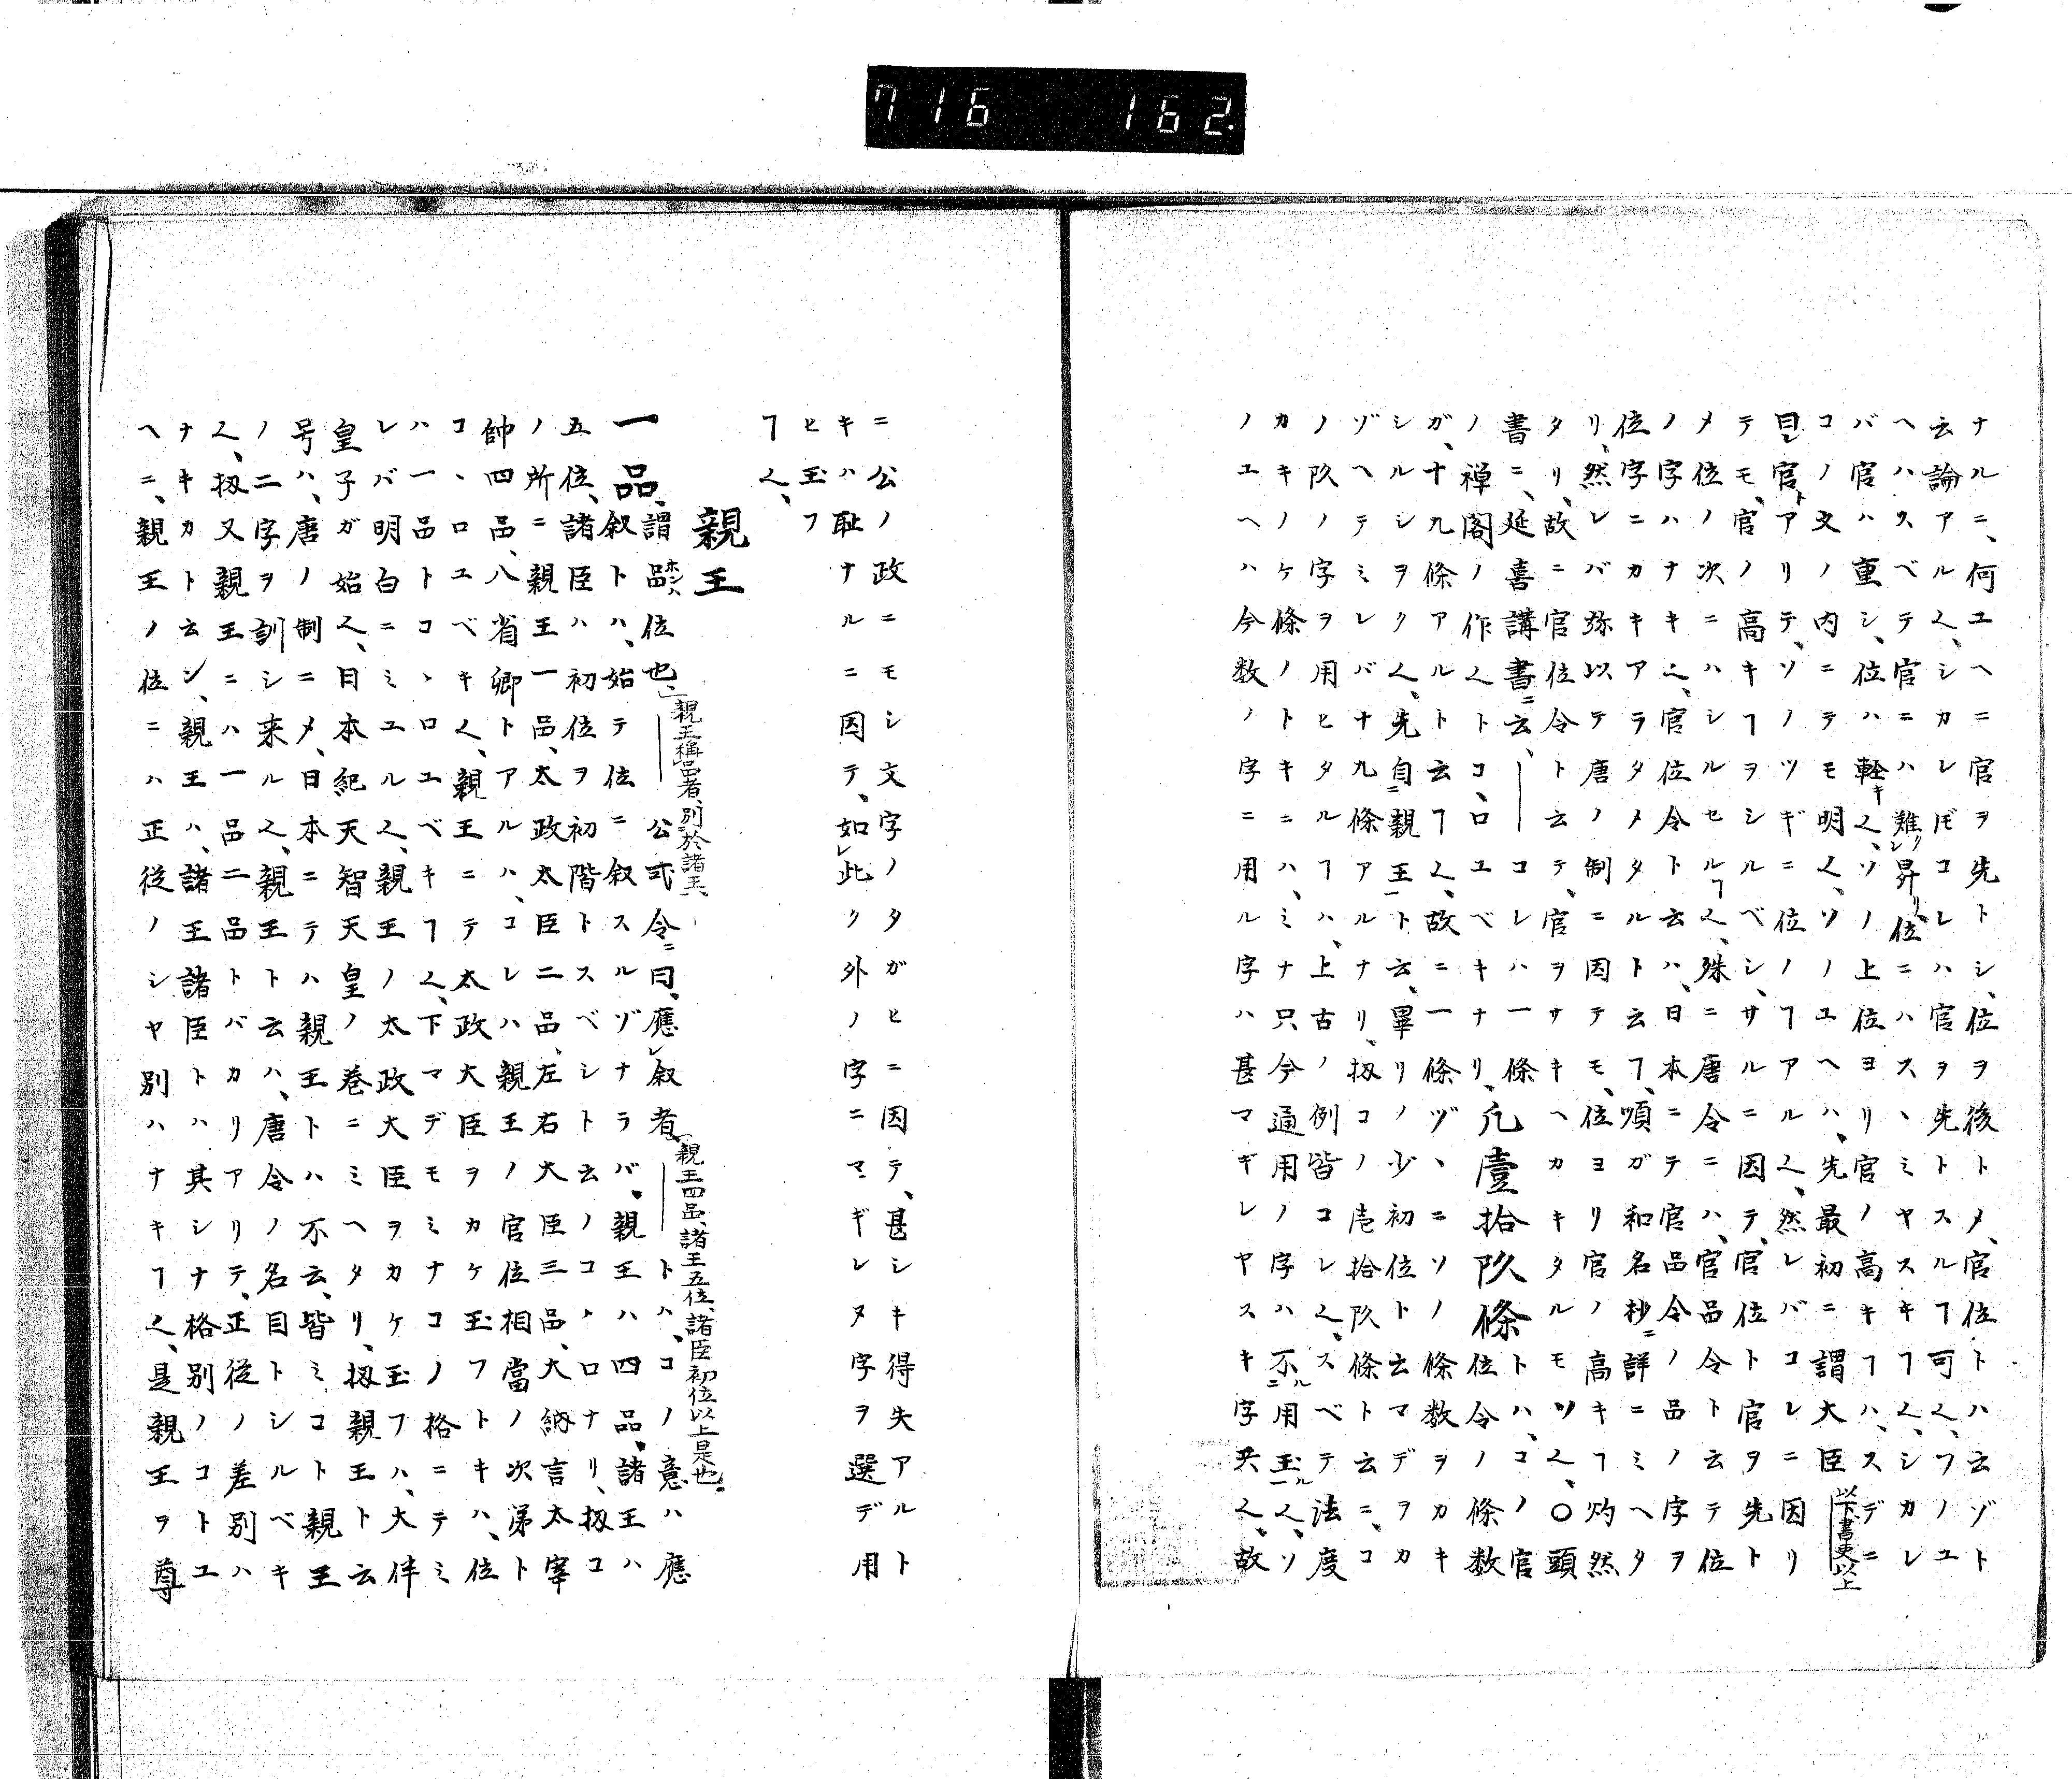 716 162.
ナルニ、何ユヘニ官ヲ先トシ、位ヲ後トメ、官位トハ云ゾト
云論アル〱、シカレ𪜈コレハ官ヲ先トスルヿ可〱、フノユ
ヘハ、スベテ官ニハ難クレ昇リ位ニハハスヽミヤスキヿ〱、シカレ
バ官ハ重シ、位ハ軽キ〱、ソノ上位ヨリ、官ノ高キヿハ、スデニ
コノ文ノ内ニテモ明〱、ソノユヘハ、先最初ニ謂大臣以下書吏以上
曰官トアリテ、ソノツギニ位ノヿアル〱、然レバコレニ因リ
テモ、官ノ高キヿヲシルベシ、サルニ因テ、官位ト官ヲ先ト
メ位ノ次ニハシルセルヿ〱、殊ニ唐令ニハ、官品令ト云テ位
ノ字ハナキ〱、官位令ト云ハ、日本ニテ官品令ノ品ノ字ヲ
位字ニカキアラタメタルト云ヿ、順ガ和名抄ニ詳ニミヘタ
リ、然レバ弥以テ唐ノ制ニ因テモ、位ヨリ官ノ高キヿ灼然
タリ、故ニ官位令ト云テ、官ヲサキヘカキタルモソ〱、○頭
書ニ、延喜講書ニ云、｜コレハ一條トハ、コノ官
ノ禅閣ノ作〱トコヽロユベキナリ、凡壹拾玖條位令ノ條数
ガ、十九條アルト云ヿ〱、故ニ一條ヅヽニソノ條数ヲカキ
シルシヲク〱、先自ニ親王一ト云、畢リノ少初位トマデヲカカ
ゾヘテミレバ十九條アルナリ、扨コノ壱拾玖條ト云ニ、コ
ノ玖ノ字ヲ用ヒタルヿハ、上古ノ例皆コレ〱、スベテ法度
カキノケ條ノトキニハ、ミナ只今通用ノ字ハ不ルニ用玉ル一〱、ソ
ノユヘハ今数ノ字ニ用ル字ハ甚マギレヤスキ字共〱、故
ニ公ノ政ニモシ文字ノタガヒニ因テ、甚シキ得失アルト
キハ耻ナルニ因テ、如レ此ク外ノ字ニマギレヌ字ヲ選デ用
ヒ玉フ
ヿ〱、
親王
一品、謂品ホンハ位也、」親王稱品者、別於諸王、公式令ニ曰、應レ叙者、親王四品、諸王五位、諸臣初位以上是也。トハ、コノ意ハ應
叙トハ、始テ位ニ叙スルゾナラバ、親王ハ四品、諸王ハ
五位、諸臣ハ初位ヲ初階トスベシト云ノコヽロナリ、扨コ
ノ所ニ親王一品、太政太臣二品、左右大臣三品、大納言太宰
帥四品、八省卿トアルハ、コレハ親王ノ官位相當ノ次第ト
コヽロユベキ〱、親王ニテ太政大臣ヲカケ玉フトキハ、位
ハ一品トコヽロユベキヿ〱、下マデモミナコノ格ニテミ
レバ明白ニミユル〱、親王ノ太政大臣ヲカケ玉フハ、大伴
皇子ガ始〱、日本紀天智天皇ノ巻ニミヘタリ、扨親王ト云
号ハ、唐ノ制ニメ、日本ニテハ親王トハ不云、皆ミコト親王
ノ二字ヲ訓シ来ル〱、親王ト云ハ、唐令ノ名目トシルベキ
〱、扨又親王ニハ一品二品トバカリアリテ、正従ノ差別ハ
ナキカト云ン、親王ハ、諸王諸臣トハ其シナ格別ノコトユ
ヘニ、親王ノ位ニハ正従ノシヤ別ハナキヿ〱、是親王ヲ尊